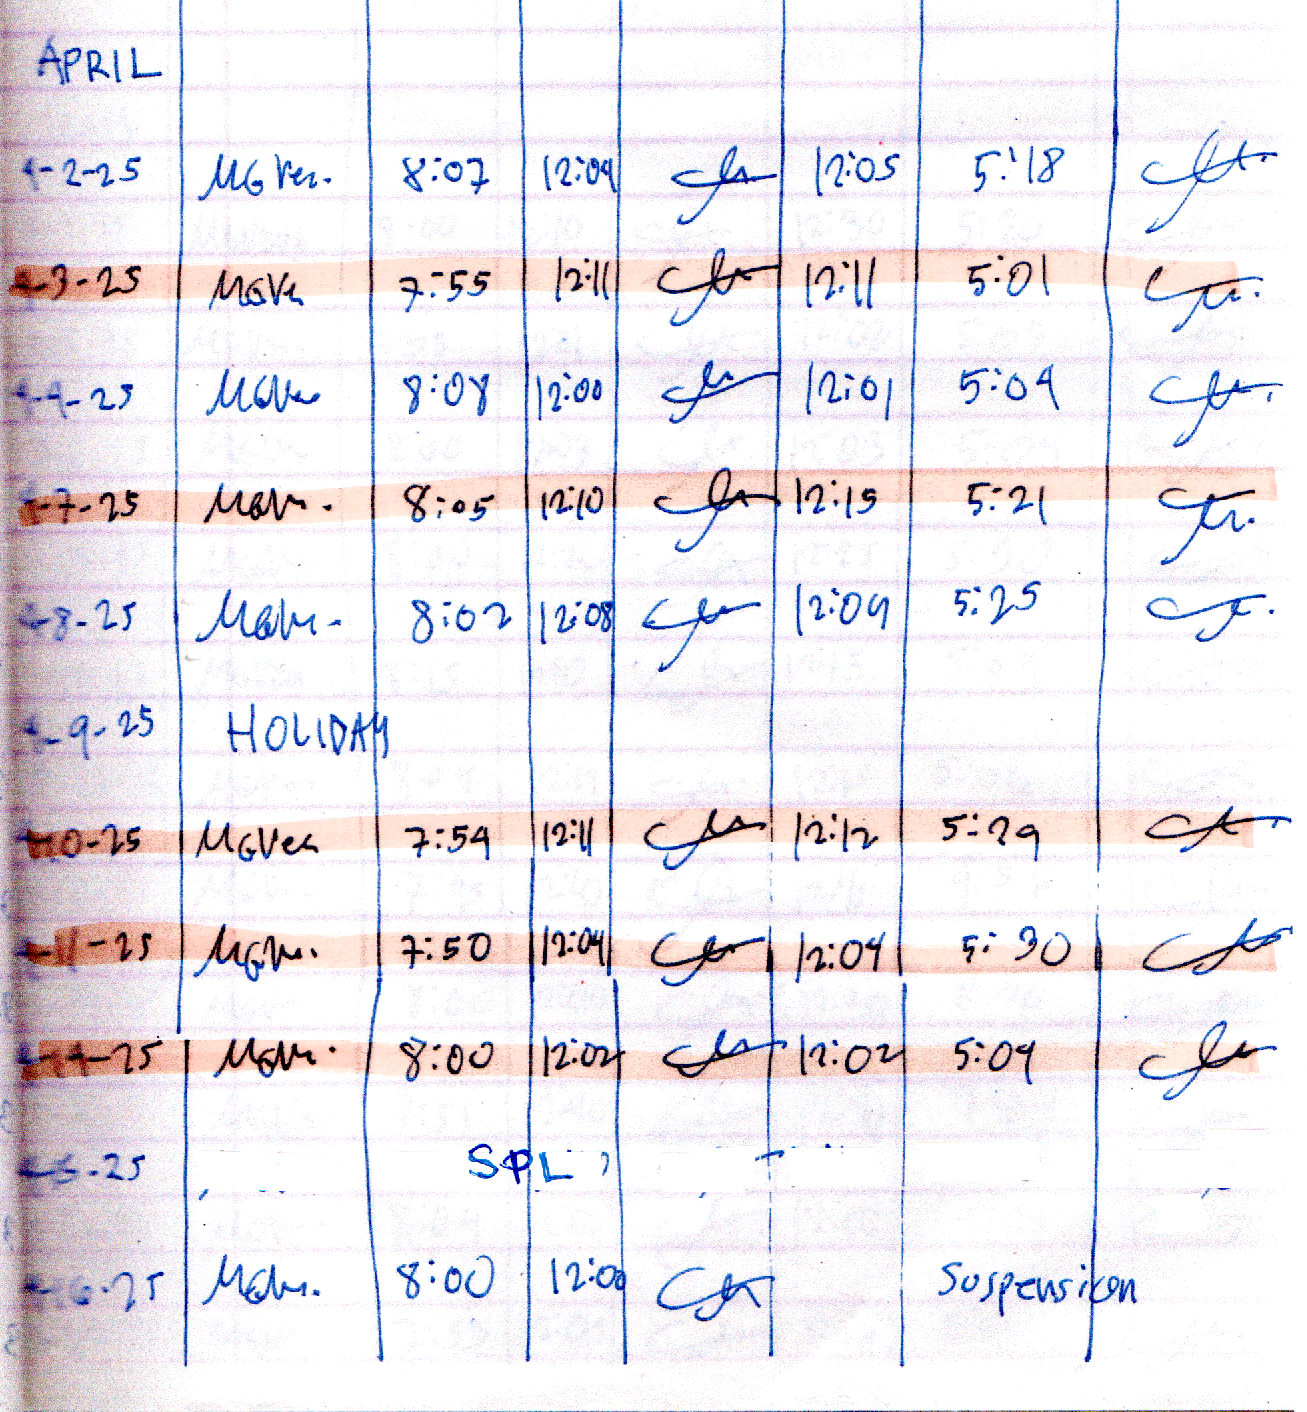 APRIL
4-2-25 MGVer. 8:07 12:04 12:05 5:18
4-3-25 MGVer 7:55 12:11 12:11 5:01
4-4-25 MGVer 8:08 12:00 12:01 5:04
4-7-25 8:05 12:10 12:15 5:21
4-8-25 8:02 12:08 12:09 5:25
4-9-25 HOLIDAY
4-10-25 MGVer 7:54 12:11 12:12 5:29
4-11-25 7:50 12:04 12:04 5:30
4-14-25 8:00 12:02 12:02 5:04
4-15-25 SPL
4-16-25 8:00 12:00 Suspension